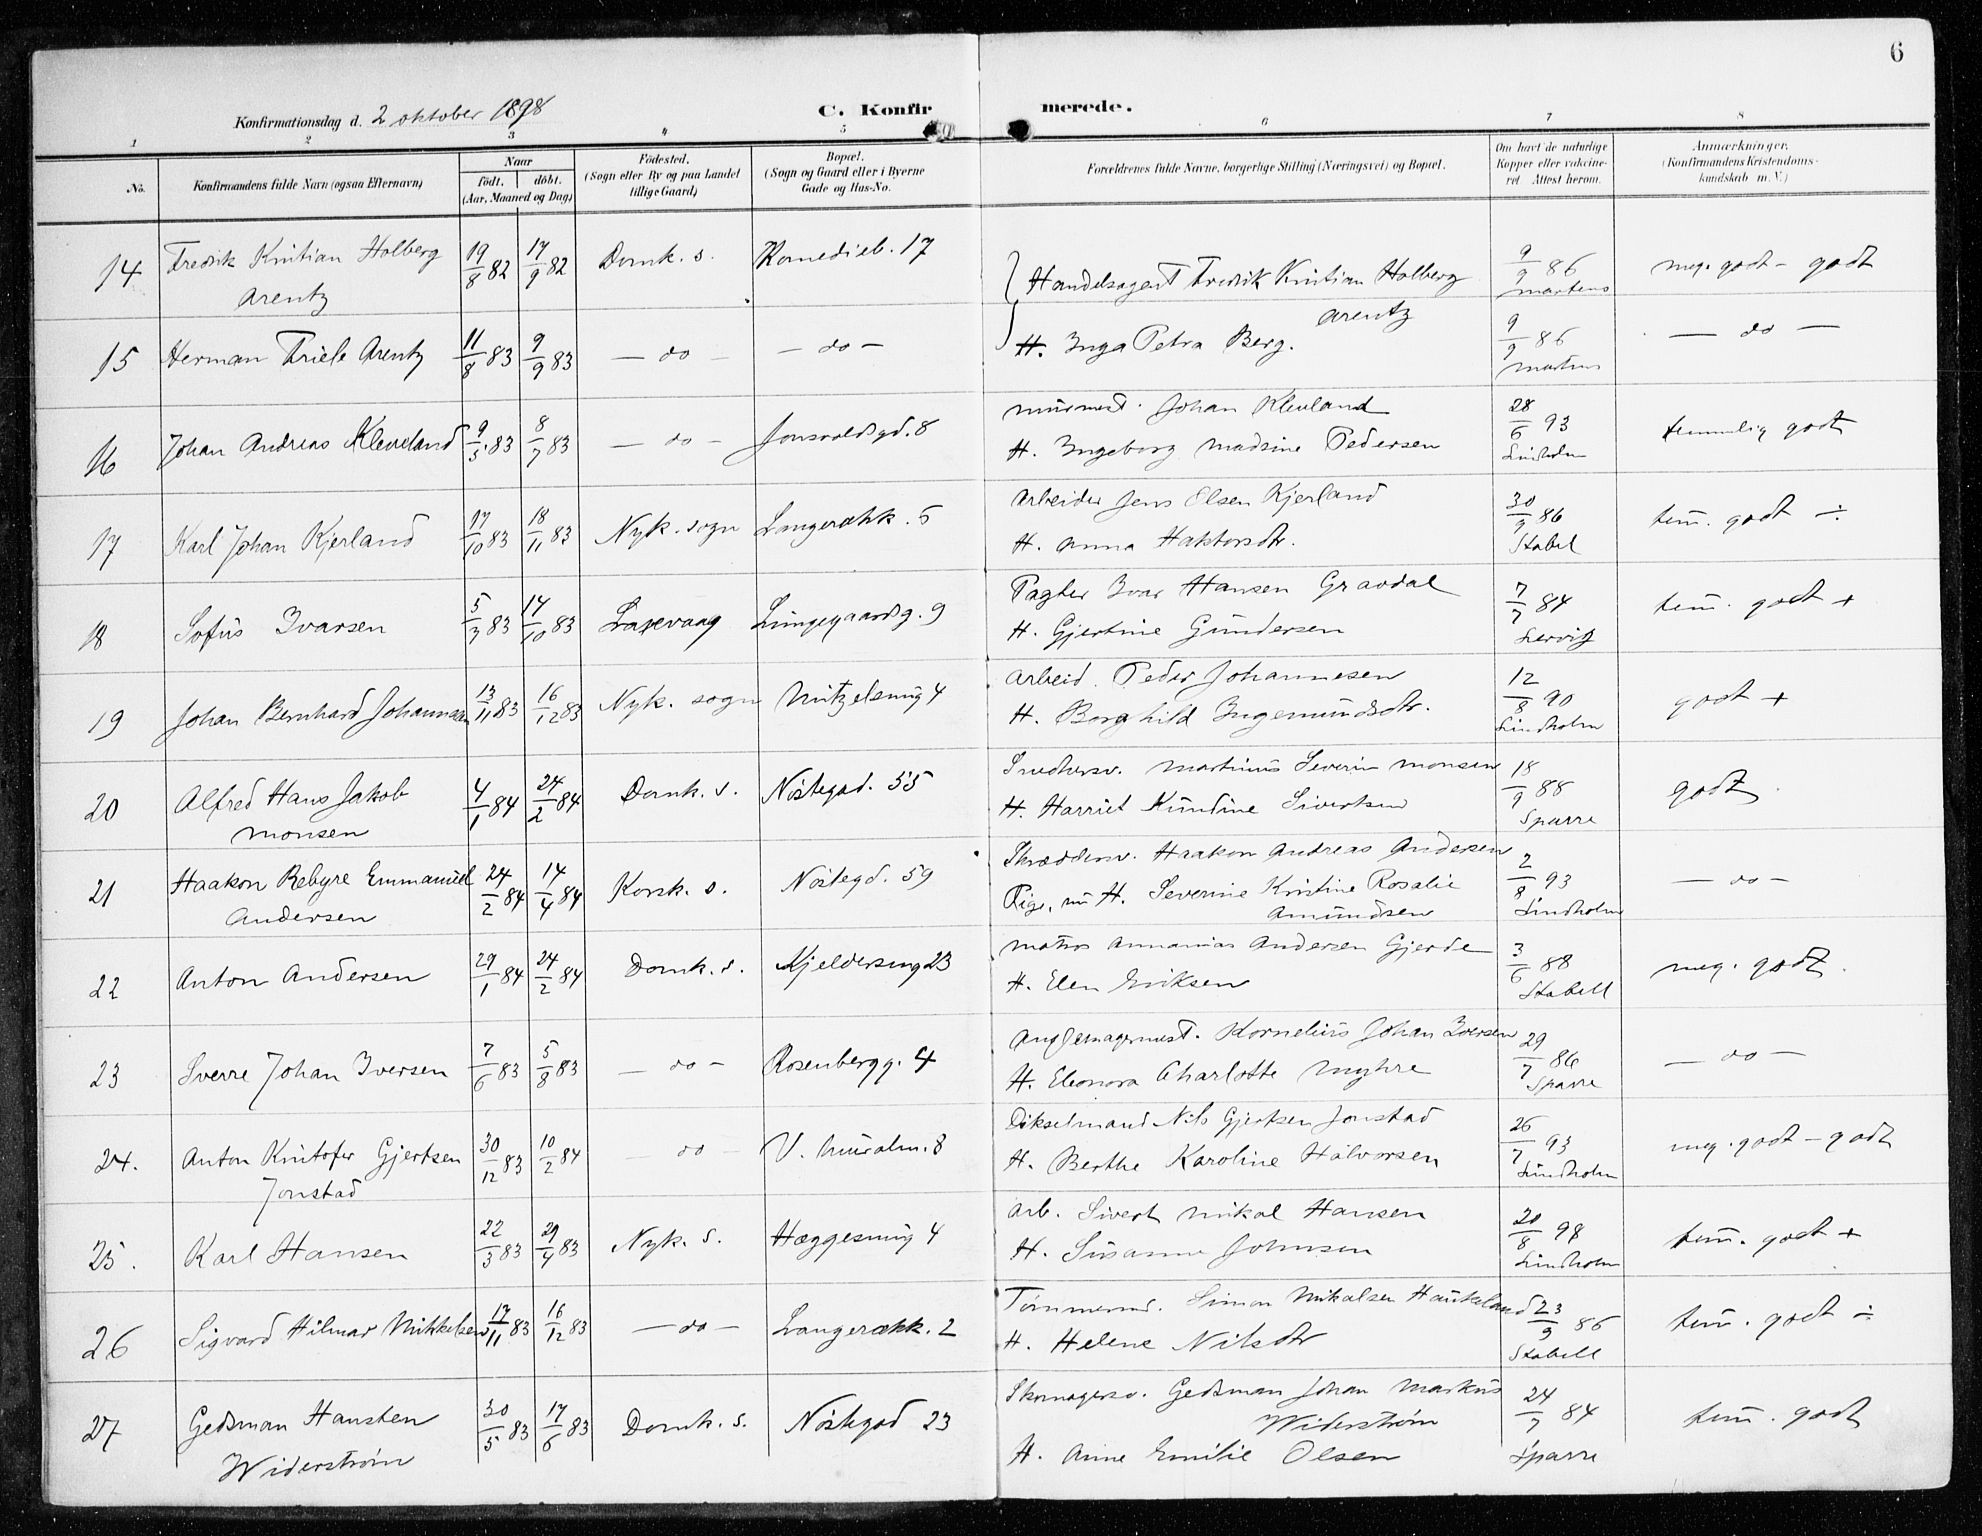 6
Konfirmationsdag d. 2 oktober 1898
C. Konfir merede.
1 2 3 4 5 6 7 8
No.
Konfirmandens fulde Navn (ogsaa Efternavn)
Naar
födt. döbt.
(Aar, Maaned og Dag)
Födested.
(Sogn eller By og paa Landet
tillige Gaard)
Bopæl.
(Sogn og Gaard eller i Byerne
Gade og Hus-No.
Forældrenes fulde Navne, borgerlige Stilling (Næringsvei) og Bopæl.
Om havt de naturlige
Kopper eller vakcine-
ret. Attest herom.
Anmærkninger.
(Konfirmandens Kristendoms-
kundskab m. V.)
14 Fredrik Kristian Holberg 19/8 82 17/9 82 Domk. s. Komedieb. 17 Handelsagent Fredrik Kristian Holberg 9/9 86 meg. godt - godt
Arentz Arentz Martens
15 Herman Friele Arentz 11/8 83 9/9 83 — do — — do — H. Inga Petra Berg. 9/9 86 — do —
Martens
16 Johan Andreas Kleveland 9/5 83 8/7 83 — do — Jonsvoldsgd. 8 Murmest. Johan Klevland 28/6 93 temmelig godt
H. Ingeborg Madsine Pedersen Lindholm
17 Karl Johan Kjerland 17/10 83 18/11 83 Nyk. sogn Langerækk. 5 Arbeider Jens Elsen Kjerland 30/9 86 tem. godt ÷
H. Anna Haktorsdtr. Stabel
18 Sofus Ivarsen 5/7 83 14/10 83 Laxevaag Lungegaardsg. 9 Pagter Ivar Hansen Gravdal 7/7 84 tem. godt +
H. Gjertine Gundersen Lervig
19 Johan Bernhard Johannesen 13/11 83 16/12 83 Nyk. sogn Nutzelsmug 4 Arbeid. Peder Johannesen 12/8 90 godt +
H. Borghild Ingemundsdtr. Lindholm
20 Alfred Hans Jakob 4/1 84 24/2 84 Domk. s. Nöstegad. 55 Snedkersv. Martinus Severin Monsen 18/9 88 godt
Monsen H. Harriet Kundine Sivertsen Sparre
21 Haakon Rebyre Emmanuel 24/2 84 14/4 84 Korsk. s. Nöstegd. 59 Skræddersv. Haakon Andreas Andersen 2/8 93 — do —
Andersen Pige, nu H. Severine Kristine Rosalie Lindholm
Amundsen
22 Anton Andersen 29/1 84 24/2 84 Domk. s. Kjeldersmug 23 Matros Annanias Andersen Gjerde 3/6 88 meg. godt.
H. Elen Eriksen Stabell
23 Sverre Johan Iversen 7/6 83 5/8 83 — do — Rosenbergg. 4 Kornelius Johan Iversen 29/7 86 — do —
H. Eleonora Charlotte Myhre Sparre
24. Anton Kristofer Gjertsen 30/12 83 10/2 84 — do — V. Muralm. 8 Dikselmand Nils Gjertsen Jonstad 26/7 93 meg. godt - godt
Jonstad H. Berthe Karoline Halvorsen Lindholm
25. Karl Hansen 22/3 83 29/4 83 Nyk. s. Hæggesmug 4 Arb. Sivert Mikal Hansen 20/8 98 tem. godt +
H. Susanne Johnsen Lindholm
26 Sigvard Hilmar Mikkelsen 17/11 83 16/12 83 — do — Langerækk. 2 Tömmermd. Simon Mikalsen Haukeland 23/9 86 tem. godt ÷
H. Helene Nilsdtr Stabell
27 Gedsman Hansten 30/5 83 17/6 83 Domk. s. Nöstegad 23 Skomagersv. Gedsman Johan Markus 24/7 84 tem. godt
Widerström Widerström
H. Anne Emilie Olsen Sparre